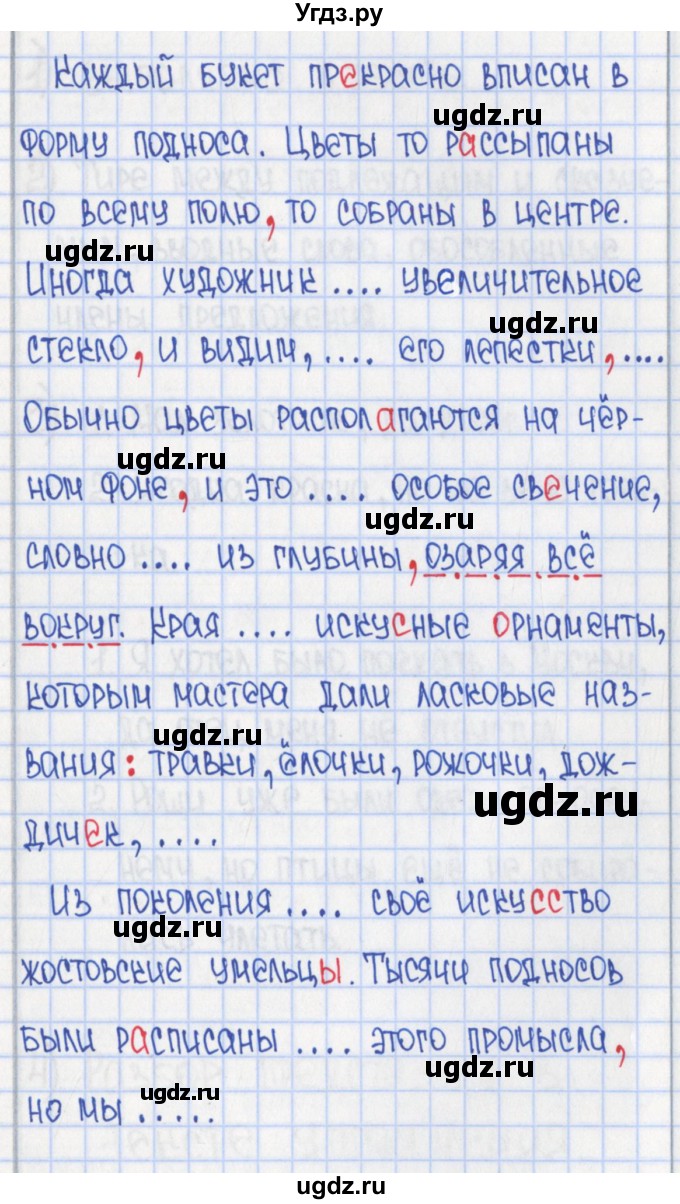 Угдз.ру
Каждый букет прекрасно вписан в
ugdz.ru
форму подноса. Цветы то рассыпаны
ugdz.ru
по всему полю, то собраны в центре.
ugdz.ru
Иногда художник .... увеличительное
ugdz.ru
стекло, и видим, .... его лепестки, ....
Обычно цветы располагаются на чёр-
ugdz.ru
ном фоне, и это .... особое свечение,
ugdz.ru
словно .... из глубины, озаряя всё
ugdz.ru
вокруг. Края .... искусные орнаменты,
ugdz.ru
которым мастера дали ласковые наз-
ugdz.ru
вания: травки, ёлочки, рожочки, дож-
ugdz.ru
дичек, ....
Из поколения .... своё искусство
ugdz.ru
жостовские умельцы. Тысячи подносов
ugdz.ru
были расписаны .... этого промысла,
ugdz.ru
ugdz.ru
но мы .....
ugdz.ru